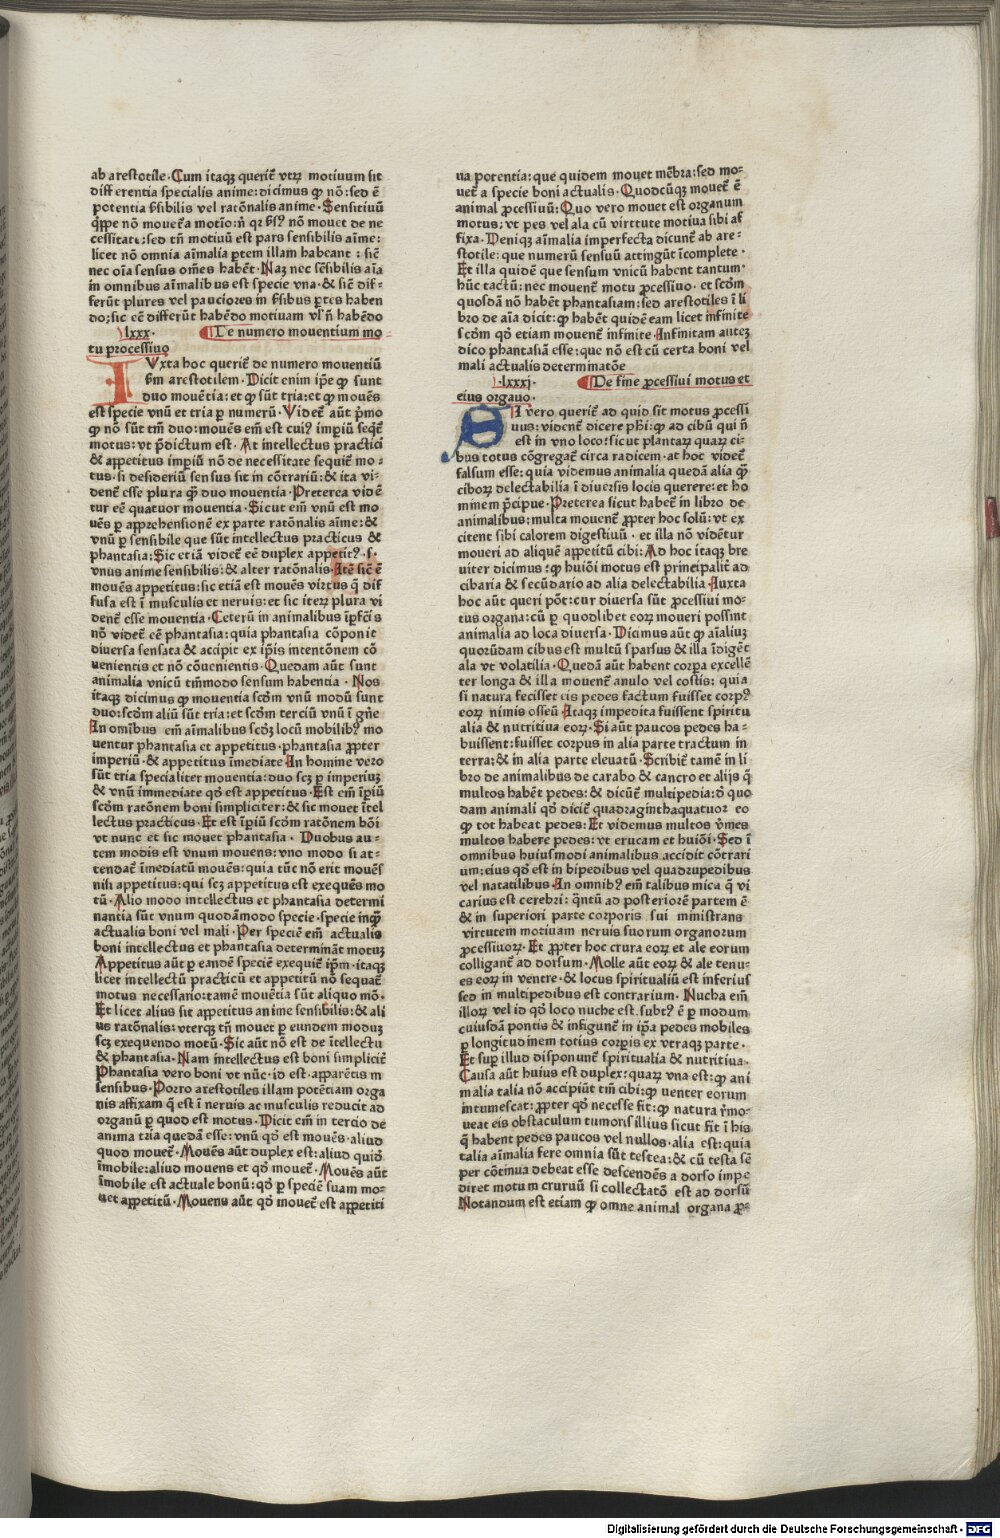 ab arestotile·Cum itaqꝫ querit̄ vtrꝫ motiuum sit
differentia specialis anime:dicimus ꝙ nō:sed ē
potentia sēsibilis vel ratōnalis anime·Sensitiuū
q̄ppe nō mouet̄ a motīo:n̄ qr sēsꝰ nō mouet de ne
cessitate;sed tn̄ motiuū est pars sensibilis aīme:
licet nō omnia aīmalia ptem illam habeant : sic̄
nec oīa sensus om̄es habēt·Naꝫ nec sēsibilis aīa
in omnibus aīmalibus est specie vna·& sic̄ dif-
ferūt plures vel pauciores in sēsibus ptes haben
do;sic eē differūt habēdo motiuam vl' n̄ habēdo
·lxxx· De numero mouentium mo
tu processiuo
IUxta hoc querit̄ de numero mouentiū
sm̄ arestotilem·Dicit enim ip̄e ꝙ sunt
duo mouētia:et ꝙ sūt tria:et ꝙ mouēs
est specie vnū et tria ꝑ numerū·Videt̄ aūt pmo
ꝙ nō sūt tm̄ duo:mouēs em̄ est cuiꝰ imperiū seq̄t̄
motus:vt pdictum est·At intellectus practici
& appetitus imperiū nō de necessitate sequit̄ mo-
tus·si desideriū sensus sit in cōtrariū:& ita vi-
dent̄ esse plura ꝙ̄ duo mouentia·Preterea vidē
tur eē quatuor mouentia·Sicut em̄ vnū est mo
uēs ꝑ apprehensionē ex parte ratōnalis aīme:&
vnū ꝑ sensibile que sūt intellectus practicus &
phantasia:Sic etiā videt̄ eē duplex appetitꝰ·s·
vnus anime sensibilis:& alter ratōnalis·Itē sic̄ ē
mouēs appetitus:sic etiā est mouēs virtus q̄ dif
fusa est ī musculis et neruis:et sic iteꝝ plura vi
dent̄ esse mouentia·Ceterū in animalibus īpfct̄is
nō videt̄ eē phantasia:quia phantasia cōponit
diuersa sensata & accipit ex ip̄is intentōnem cō
uenientis et nō cōuenientis·Quedam aūt sunt
animalia vnicū tm̄modo sensum habentia · Nos
itaqꝫ dicimus ꝙ mouentia scd̄m vnū modū sunt
duo:scd̄m aliū sūt tria:et scd̄m terciū vnū ī gn̄e
In omībus em̄ aīmalibus scd̄ꝫ locū mobilibꝰ mo
uentur phantasia et appetitus·phantasia ꝓpter
imperiū·& appetitus īmediate In homine vero
sūt tria specialiter mouentia:duo scꝫ ꝑ imperiuꝫ
& vnū immediate qd̄ est appetitus·Est em̄ īpiū
scd̄m ratōnem boni simpliciter:& sic mouet ītel
lectus practicus·Et est īpiū scd̄m ratōnem bōi
vt nunc et sic mouet phantasia · Duobus au-
tem modis est vnum mouens:vno modo si at-
tendat̄ īmediatū mouēs:quia tūc nō erit mouēs
nisi appetitus:qui scꝫ appetitus est exequēs mo
tū·Alio modo intellectus et phantasia determi
nantia sūt vnum quodāmodo specie·specie inqꝙ
actualis boni vel mali·Per speciē em̄ actualis
boni intellectus et phantasia determināt motuꝫ
Appetitus aūt ꝑ eandē speciē exequit̄ ip̄m·itaqꝫ
licet intellectū practicū et appetitū nō sequat̄
motus necessario:tamē mouētia sūt aliquo mō·
Et licet alius sit appetitus anime sensibilis:& ali
us ratōnalis:vterqꝫ tn̄ mouet ꝑ eundem moduꝫ
scꝫ exequendo motū·Sic aūt nō est de ītellectu
& phantasia·Nam intellectus est boni simplicit̄
Phantasia vero boni vt nūc·id est·apparētis in
sensibus·Porro arestotiles illam potētiam orga
nis affixam q̄ est ī neruis ac musculis reducit ad
organū ꝑ quod est motus·Dicit em̄ in tercio de
anima tria quedā esse:vnū qd̄ est mouēs·aliud
quod mouet̄·Mouēs aūt duplex est:aliud quid̄
īmobile:aliud mouens et qd̄ mouet̄·Mouēs aūt
īmobile est actuale bonū:qd̄ ꝑ speciē suam mo-
uet appetitū·Mouens aūt qd̄ mouet̄ est appetiti
ua potentia:que quidem mouet mēbra:sed mo-
uet̄ a specie boni actualis·Quodcūqꝫ mouet̄ ē
animal ꝓcessiuū:Quo vero mouet est organum
motus;vt pes vel ala cū virttute motiua sibi af
fixa·Deniqꝫ aīmalia imperfecta dicunt̄ ab are-
stotile:que numerū sensuū attingūt īcomplete·
Et illa quidē que sensum vnicū habent tantum·
hūc tactū:nec mouent̄ motu ꝓcessiuo·et scd̄m
quosdā nō habēt phantasiam:sed arestotiles ī li
bro de aīa dicit:ꝙ habēt quidē eam licet infinite
scd̄m qd̄ etiam mouent̄ infinite·Infinitam auteꝫ
dico phantasiā esse:que nō est cū certa boni vel
mali actualis determinatōe
·lxxxj· De fine ꝓcessiui motus et
eius organo·
SI vero querit̄ ad quid sit motus ꝓcessi
uus:vident̄ dicere phi:ꝙ ad cibū qui n̄
est in vno loco:sicut plantaꝝ quaꝝ ci-
bus totus cōgregat̄ circa radicem·at hoc videt̄
falsum esse:quia videmus animalia quedā alia ꝙ̄
ciboꝝ delectabilia ī diuersis locis querere:et ho
minem p̄cipue·Preterea sicut habet̄ in libro de
animalibus:multa mouent̄ ꝓpter hoc solū:vt ex
citent sibi calorem digestiuū · et illa nō vidētur
moueri ad aliquē appetitū cibi:Ad hoc itaqꝫ bre
uiter dicimus:ꝙ huiōi motus est principalit̄ ad
cibaria et secūdario ad alia delectabilia·Iuxta
hoc aūt queri pōt:cur diuersa sūt ꝓcessiui mo-
tus organa:cū ꝑ quodlibet eoꝝ moueri possint
animalia ad loca diuersa·Dicimus aūt ꝙ aīaliuꝫ
quorūdam cibus est multū sparsus & illa īdigēt
ala vt volatilia·Quedā aūt habent corpa excellē
ter longa & illa mouent̄ anulo vel costis: quia
si natura fecisset eis pedes factum fuisset corpꝰ
eoꝝ nimis osseū·Itaqꝫ impedita fuissent spiritu
alia & nutritiua eoꝝ·Si aūt paucos pedes ha-
buissent:fuisset corpus in alia parte tractum in
terra:& in alia parte eleuatū·Scribit̄ tamē in li
bro de animalibus de carabo & cancro et alijs q̄
multos habēt pedes:& dicūt̄ multipedia:& quo
dam animali qd̄ dicit̄ quadraginthaquatuor eo
ꝙ tot habeat pedes:Et videmus multos v̄mes
multos habere pedes:vt erucam et huiōi·Sed ī
omnibus huiusmodi animalibus accidit cōtrari
um:eius qd̄ est in bipedibus vel quadrupedibus
vel natatilibus·In omnibꝰ em̄ talibus mica q̄ vi
carius est cerebri: q̄ntū ad posteriorē partem ē
& in superiori parte corporis sui ministrans
virtutem motiuam neruis suorum organorum
ꝓcessiuoꝝ·Et ꝓpter hoc crura eoꝝ et ale eorum
colligant̄ ad dorsum·Molle aūt eoꝝ & ale tenu-
es eoꝝ in ventre·& locus spiritualiū est inferius
sed in multipedibus est contrarium·Nucha em̄
illoꝝ vel id qd̄ loco nuche est·subtꝰ ē ꝑ modum
cuiusdā pontis & infigunt̄ in ip̄a pedes mobiles
ꝑ longitudinem totius corpis ex vtraqꝫ parte·
Et supr illud disponunt̄ spiritualia & nutritiua·
Causa aūt huius est duplex:quaꝝ vna est:ꝙ ani
malia talia nō accipiūt tm̄ cibi:ꝙ venter eorum
intumescat:ꝓpter qd̄ necesse sit:ꝙ natura r̄mo-
ueat eis obstaculum tumoris illius sicut fit ī his
q̄ habent pedes paucos vel nullos·alia est:quia
talia aīmalia fere omnia sūt testea:& cū testa sē
per cōtinua debeat esse descendēs a dorso impe
diret motum cruruū si collectatō est ad dorsū
Notandum est etiam ꝙ omne animal organa ꝓ-
Digitalisierung gefördert durch die Deutsche Forschungsgemeinschaft - DFG